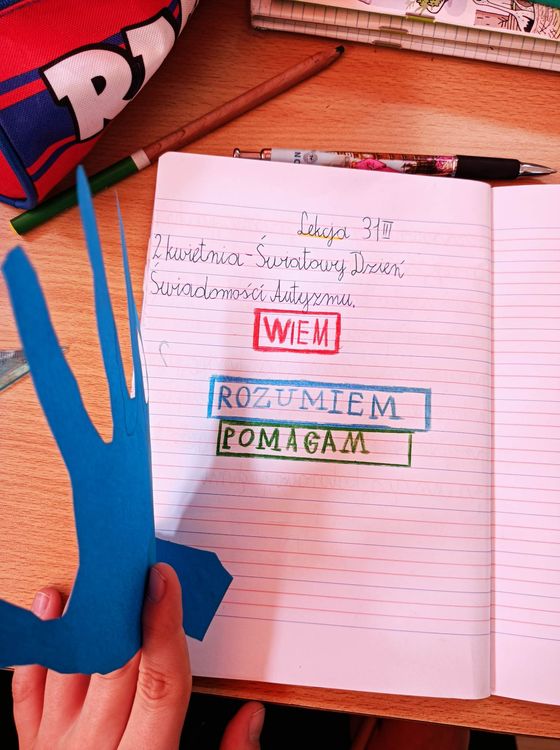 Lekcja 31 III
2 kwietnia - Światowy Dzień
Świadomości Autyzmu.
WIEM
ROZUMIEM
POMAGAM